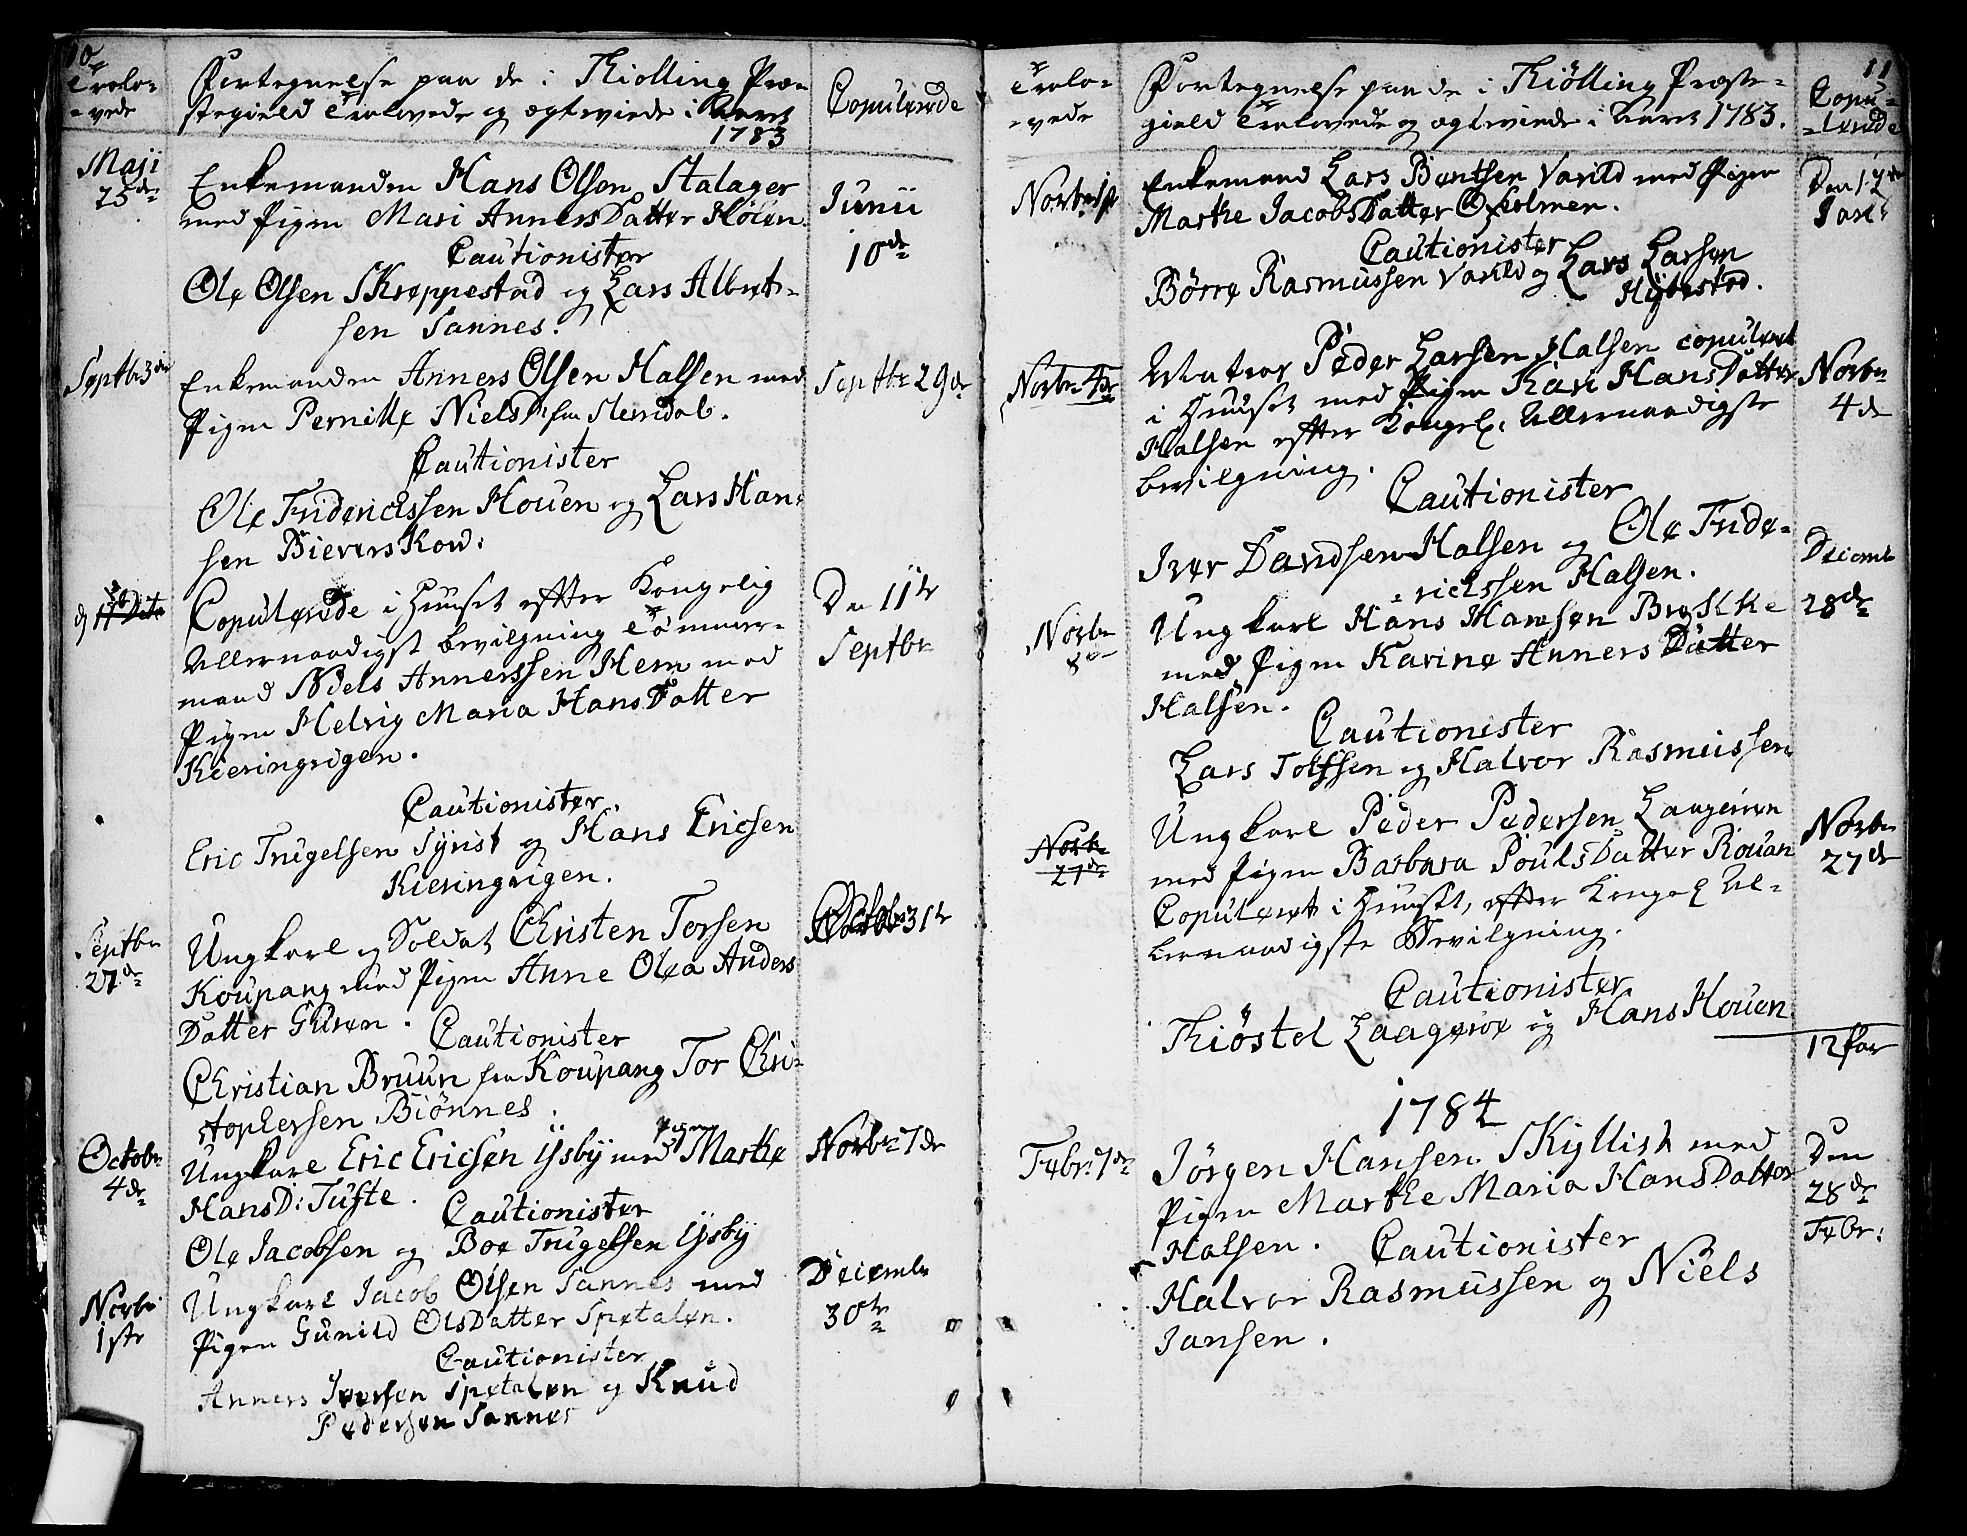 10
Trolo-
-vede
Fortegnelse paa de i Thiølling Præ-
stegield Trolovede og ægteviede i Aaret
1783
Copulerede
Maji
25de
Enkemanden Hans Olsen Stalager
med Pigen Mari AnnersDatter Hølen.
Cautionister
Ole Olsen SKreppestad og Lars Albret-
sen Sannes.
Junii
10de
Septbr 3die
Enkemanden Anners Olsen Halsen med
Pigen Pernille NielsD: fra
Cautionister
Ole Friderichssen Houen og Lars Han-
sen BieversKow.
Septbr 29de
Copulerede i Huuset efter Kongelig
Allernaadigst bevilgning Tømmer-
mand Niels Annerssen Hem med
Pigen Helvig Maria HansDatter
Kieringvigen.
Cautionister.
Eric Trugelsen Syrist og Hans Ericsen
Kieringvigen.
Den 11te
Septbr
Septbr
27de
Ungkarl og Soldat Christen Torsen
Koupang med Pigen Anne Olea Anders
Datter Guren.
Cautionister
Christian Bruun fra Koupang Tor Chri-
stophersen Biønnes.
Octobr 31te
Octobr
4de
Ungkarl Eric Ericsen Ijsby med Pigen Marthe
HansD: Tufte.
Cautionister
Ole Jacobsen og Boe Trugelsen Ijsby
Novbr 7de
Novbr
1ste
Ungkarl Jacob Olsen Sannes med
Pigen Gunild OlsDatter Spetalen.
Cautionister
Anners Iversen Spetalen og Knud
Pedersen Sannes
Decembr
30te
11
Trolo-
-vede
Fortegnelse paa de i Thiølling Præste-
gield Trolovede og ægteviede i Aaret 1783.
Copu-
-lerede
Novbr 1ste
Enkemand Lars Bentsen Varild med Pigen
Marthe JacobsDatter Oxholmen.
Cautionister
Børre Rasmussen Varild og Lars Larsen
Hybestad.
Den 12te
Jan:
Novbr 4de
Matros Peder Larsen Halsen copuleret
i Huuset med Pigen Kari HansDatter
Halsen efter Kongel. Allernaadigste
bevilgning.
Cautionister
Iver Davidsen Halsen og Ole Fride-
-richssen Halsen.
Novbr
4de
Novbr
8de
Ungkarl Hans Hansen BreKKe
med Pigen Karine Anners Datter
Halsen.
Cautionister
Lars Tolfsen og Halvor Rasmussen
Decembr
28de
Novbr
27de
Ungkarl Peder Pedersen Laageröen
med Pigen Barbara PoulsDatter Rouan
Copuleret i Huuset, efter Kongel Al-
lernaadigste Bevilgning.
Cautionister
Thiøstel Laageröe og Hans Houen
Novbr
27de
12 Par
1784
Febr: 7de
Jørgen Hansen SKyllist med
Pigen Marthe Maria HansDatter
Halsen.
Cautionister
Halvor Rasmussen og Niels
Jansen.
Den
28de
Febr: